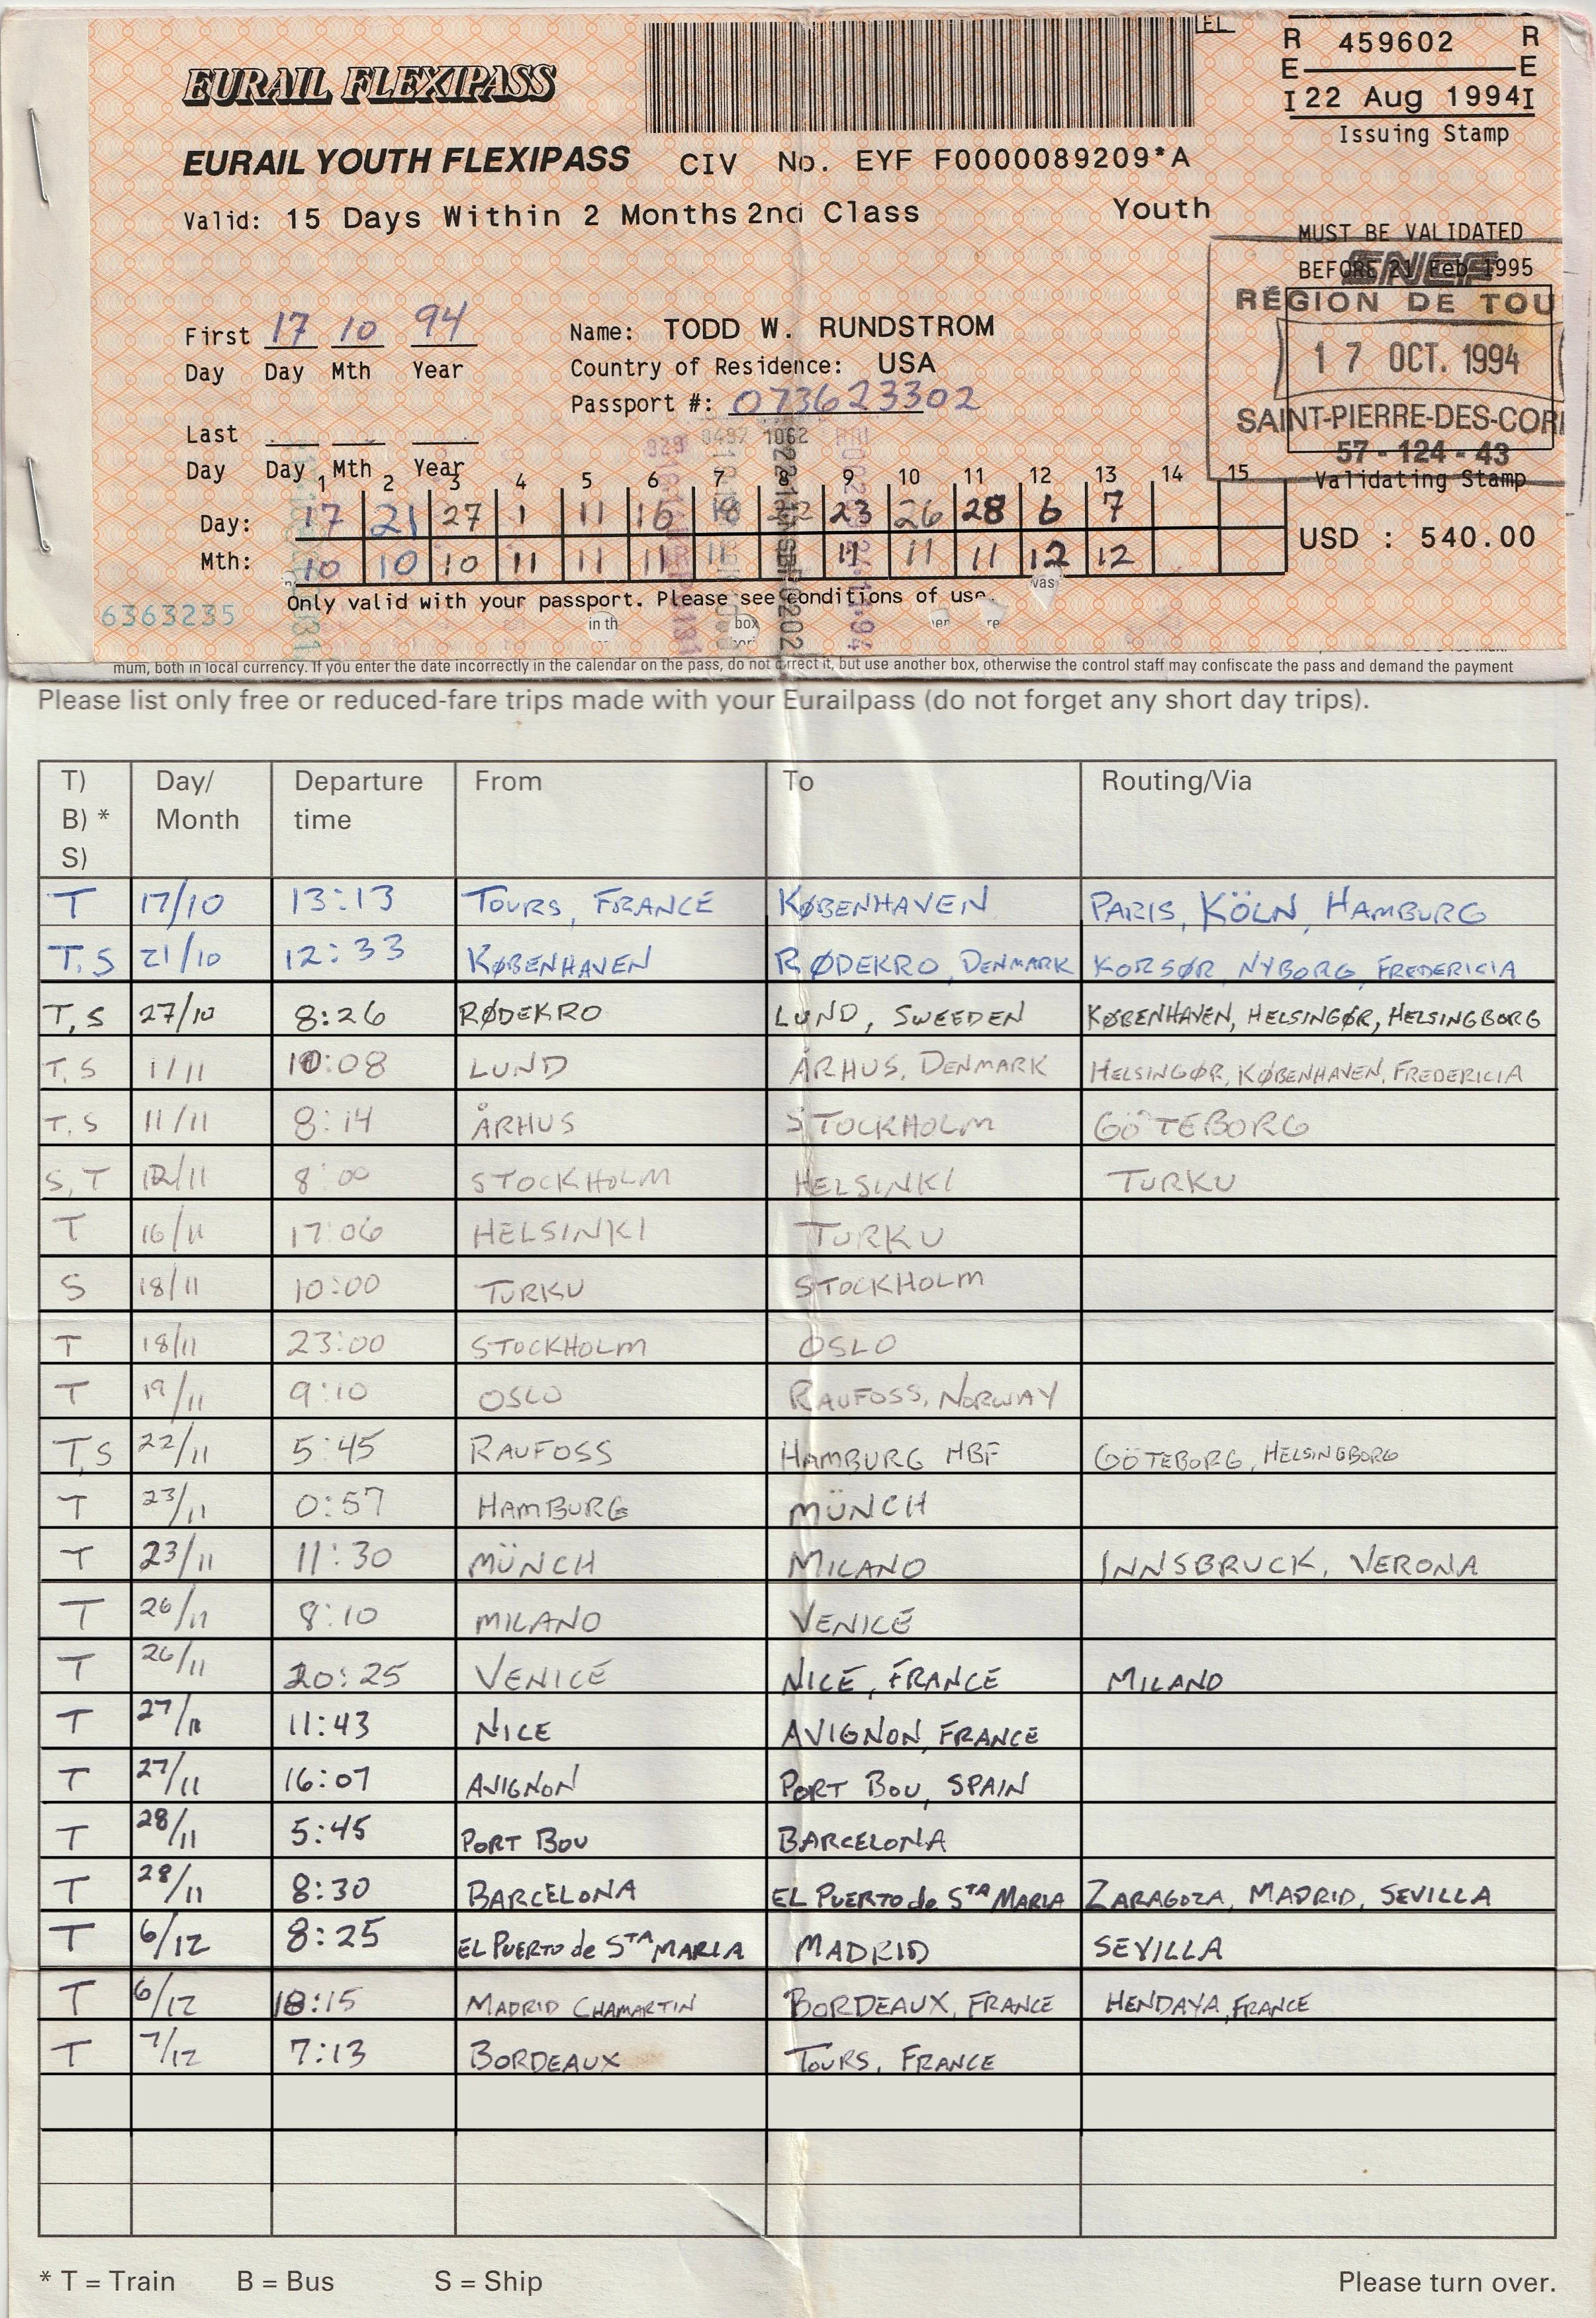 EL
R 459602 R
E E
I 22 Aug 1994 I
Issuing Stamp
EURAIL FLEXIPASS
EURAIL YOUTH FLEXIPASS CIV No. EYF F0000089209*A
Valid: 15 Days Within 2 Months 2nd Class Youth
MUST BE VALIDATED
BEFORE 21 Feb 1995
SNCF
RÉGION DE TOU
17 OCT. 1994
SAINT-PIERRE-DES-COR
57-124-43
Validating Stamp
First 17 10 94
Day Day Mth Year
Name: TODD W. RUNDSTROM
Country of Residence: USA
Passport #: 073623302
Last
Day Day Mth Year
1 2 3 4 5 6 7 8 9 10 11 12 13 14 15
Day: 17 21 27 1 11 16 18 22 23 26 28 6 7
Mth: 10 10 10 11 11 11 11 11 11 11 12 12
USD : 540.00
Only valid with your passport. Please see conditions of use.
6363235
in th box vas
mum, both in local currency. If you enter the date incorrectly in the calendar on the pass, do not correct it, but use another box, otherwise the control staff may confiscate the pass and demand the payment
Please list only free or reduced-fare trips made with your Eurailpass (do not forget any short day trips).
T) B) * S) Day/ Month Departure time From To Routing/Via
T 17/10 13:13 TOURS, FRANCE KØBENHAVEN PARIS, KÖLN, HAMBURG
T, S 21/10 12:33 KØBENHAVEN RØDEKRO, DENMARK KORSØR, NYBORG, FREDERICIA
T, S 27/10 8:26 RØDEKRO LUND, SWEEDEN KØBENHAVEN, HELSINGØR, HELSINGBORG
T, S 1/11 10:08 LUND ÅRHUS, DENMARK HELSINGØR, KØBENHAVEN, FREDERICIA
T, S 11/11 8:14 ÅRHUS STOCKHOLM GÖTEBORG
S, T 12/11 8:00 STOCKHOLM HELSINKI TURKU
T 16/11 17:06 HELSINKI TURKU
S 18/11 10:00 TURKU STOCKHOLM
T 18/11 23:00 STOCKHOLM OSLO
T 19/11 9:10 OSLO RAUFOSS, NORWAY
T, S 22/11 5:45 RAUFOSS HAMBURG HBF GÖTEBORG, HELSINGBORG
T 23/11 0:57 HAMBURG MÜNCH
T 23/11 11:30 MÜNCH MILANO INNSBRUCK, VERONA
T 26/11 8:10 MILANO VENICE
T 26/11 20:25 VENICE NICE, FRANCE MILANO
T 27/11 11:43 NICE AVIGNON, FRANCE
T 27/11 16:07 AVIGNON PORT BOU, SPAIN
T 28/11 5:45 PORT BOU BARCELONA
T 28/11 8:30 BARCELONA EL PUERTO de STA MARIA ZARAGOZA, MADRID, SEVILLA
T 6/12 8:25 EL PUERTO de STA MARIA MADRID SEVILLA
T 6/12 18:15 MADRID CHAMARTIN BORDEAUX, FRANCE HENDAYA, FRANCE
T 7/12 7:13 BORDEAUX TOURS, FRANCE
* T = Train B = Bus S = Ship Please turn over.